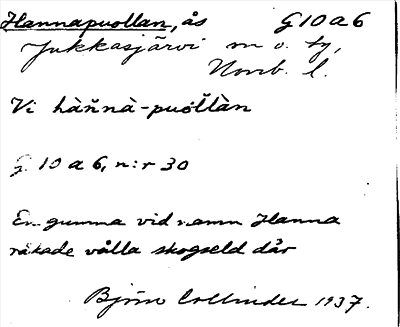 Hannapuollan, ås G10a6
Jukkasjärvi sn o. tg,
Norrb. l.
Vi hàn̄nà-puol̄làn
G 10 a 6, n:r 30
En gumma vid namn Hanna
råkade vålla skogseld där
Björn Collinder 1937.